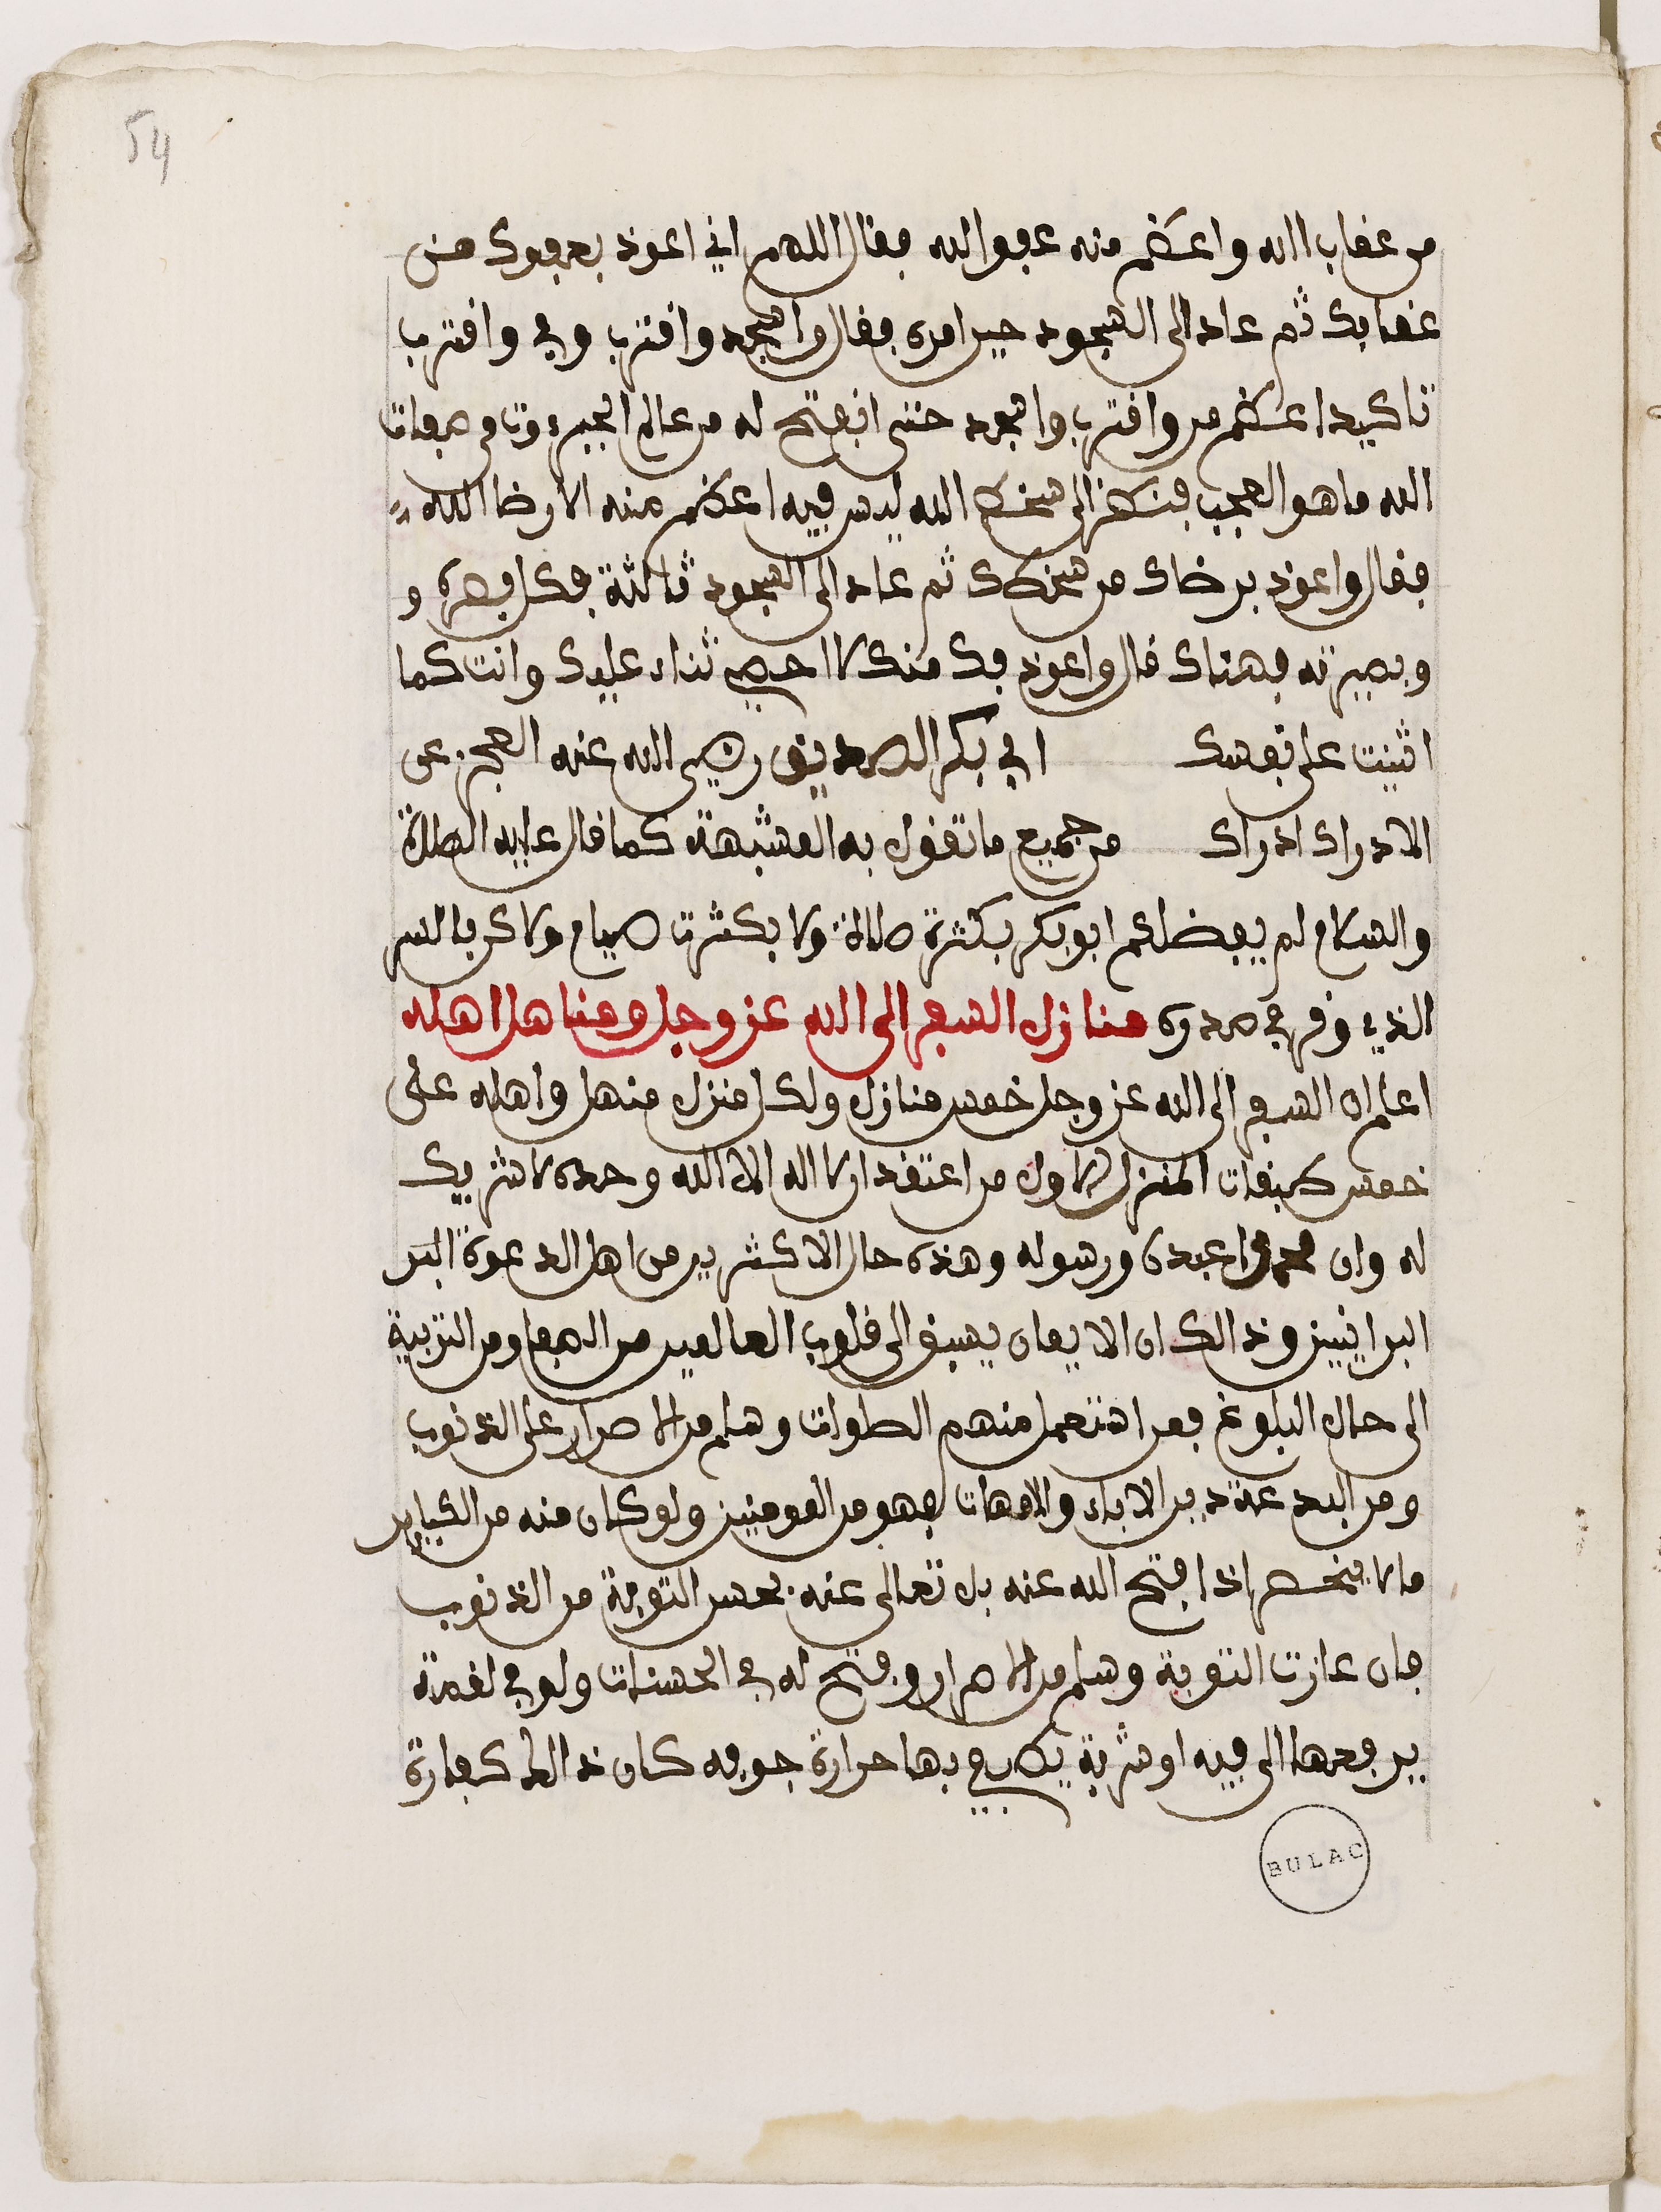 54
من عقاب الله واعظم منه عفو الله فقال اللهم اني اعوذ بعفوك من
عقابك ثم عاد الى السجود حين امره فقال واسجد واقترب وفي واقترب
تاكيدا عظم من واقترب واسجد حتى انفتح له من عالم الجبروت في صفات
الله ما هو العجب فنظر الى سخط الله ليس فيه اعظم منه الا رضا الله
فقال واعوذ برضاك من سخطك ثم عاد الى السجود ثالثة فكل بصره و
وبصيرته فهناك قال واعوذ بك منك لا احصي ثناء عليك وانت كما
اثنيت على نفسك ابي بكر الصديق رضي الله عنه العجز عن
الادراك ادراك من جميع ما تقول به المشبهة كما قال عليه الصلاة
والسلام لم يفضلكم ابو بكر بكثرة صلاة ولا بكثرت صيام ولاكن بالسر
الذي وقر في صدره منازل السفر الى الله عز وجل ومناهل اهله
اعلم ان السفر الى الله عز وجل خمس منازل ولكل منزل منهل واهله على
خمس طبقات المنزل الاول من اعتقد ان لا اله الا الله وحده لا شريك
له وان محمدا عبده ورسوله وهذه حال الاكثرين من اهل الدعوة البر
البرانيين وذالك ان الايمان يسبق الى قلوب العالمين من الدهما ومن التربية
الى حال البلوغ فمن استعمل منهم الصلوات وسلم من الاصرار على الذنوب
ومن البدعة دين الاباء والامهات فهو من المومنين ولو كان منه من الكباير
ما لا ينحصر اذا فتح الله عنه بل تعالى عنه بحسن التوبة من الذنوب
فان عازت التوبة وسلم من الاصرار وفتح له في الحسنات ولو في لقمة
يرفعها الى فيه او شربة يطفي بها حرارة جوفه كان ذالك كفارة
BULAC